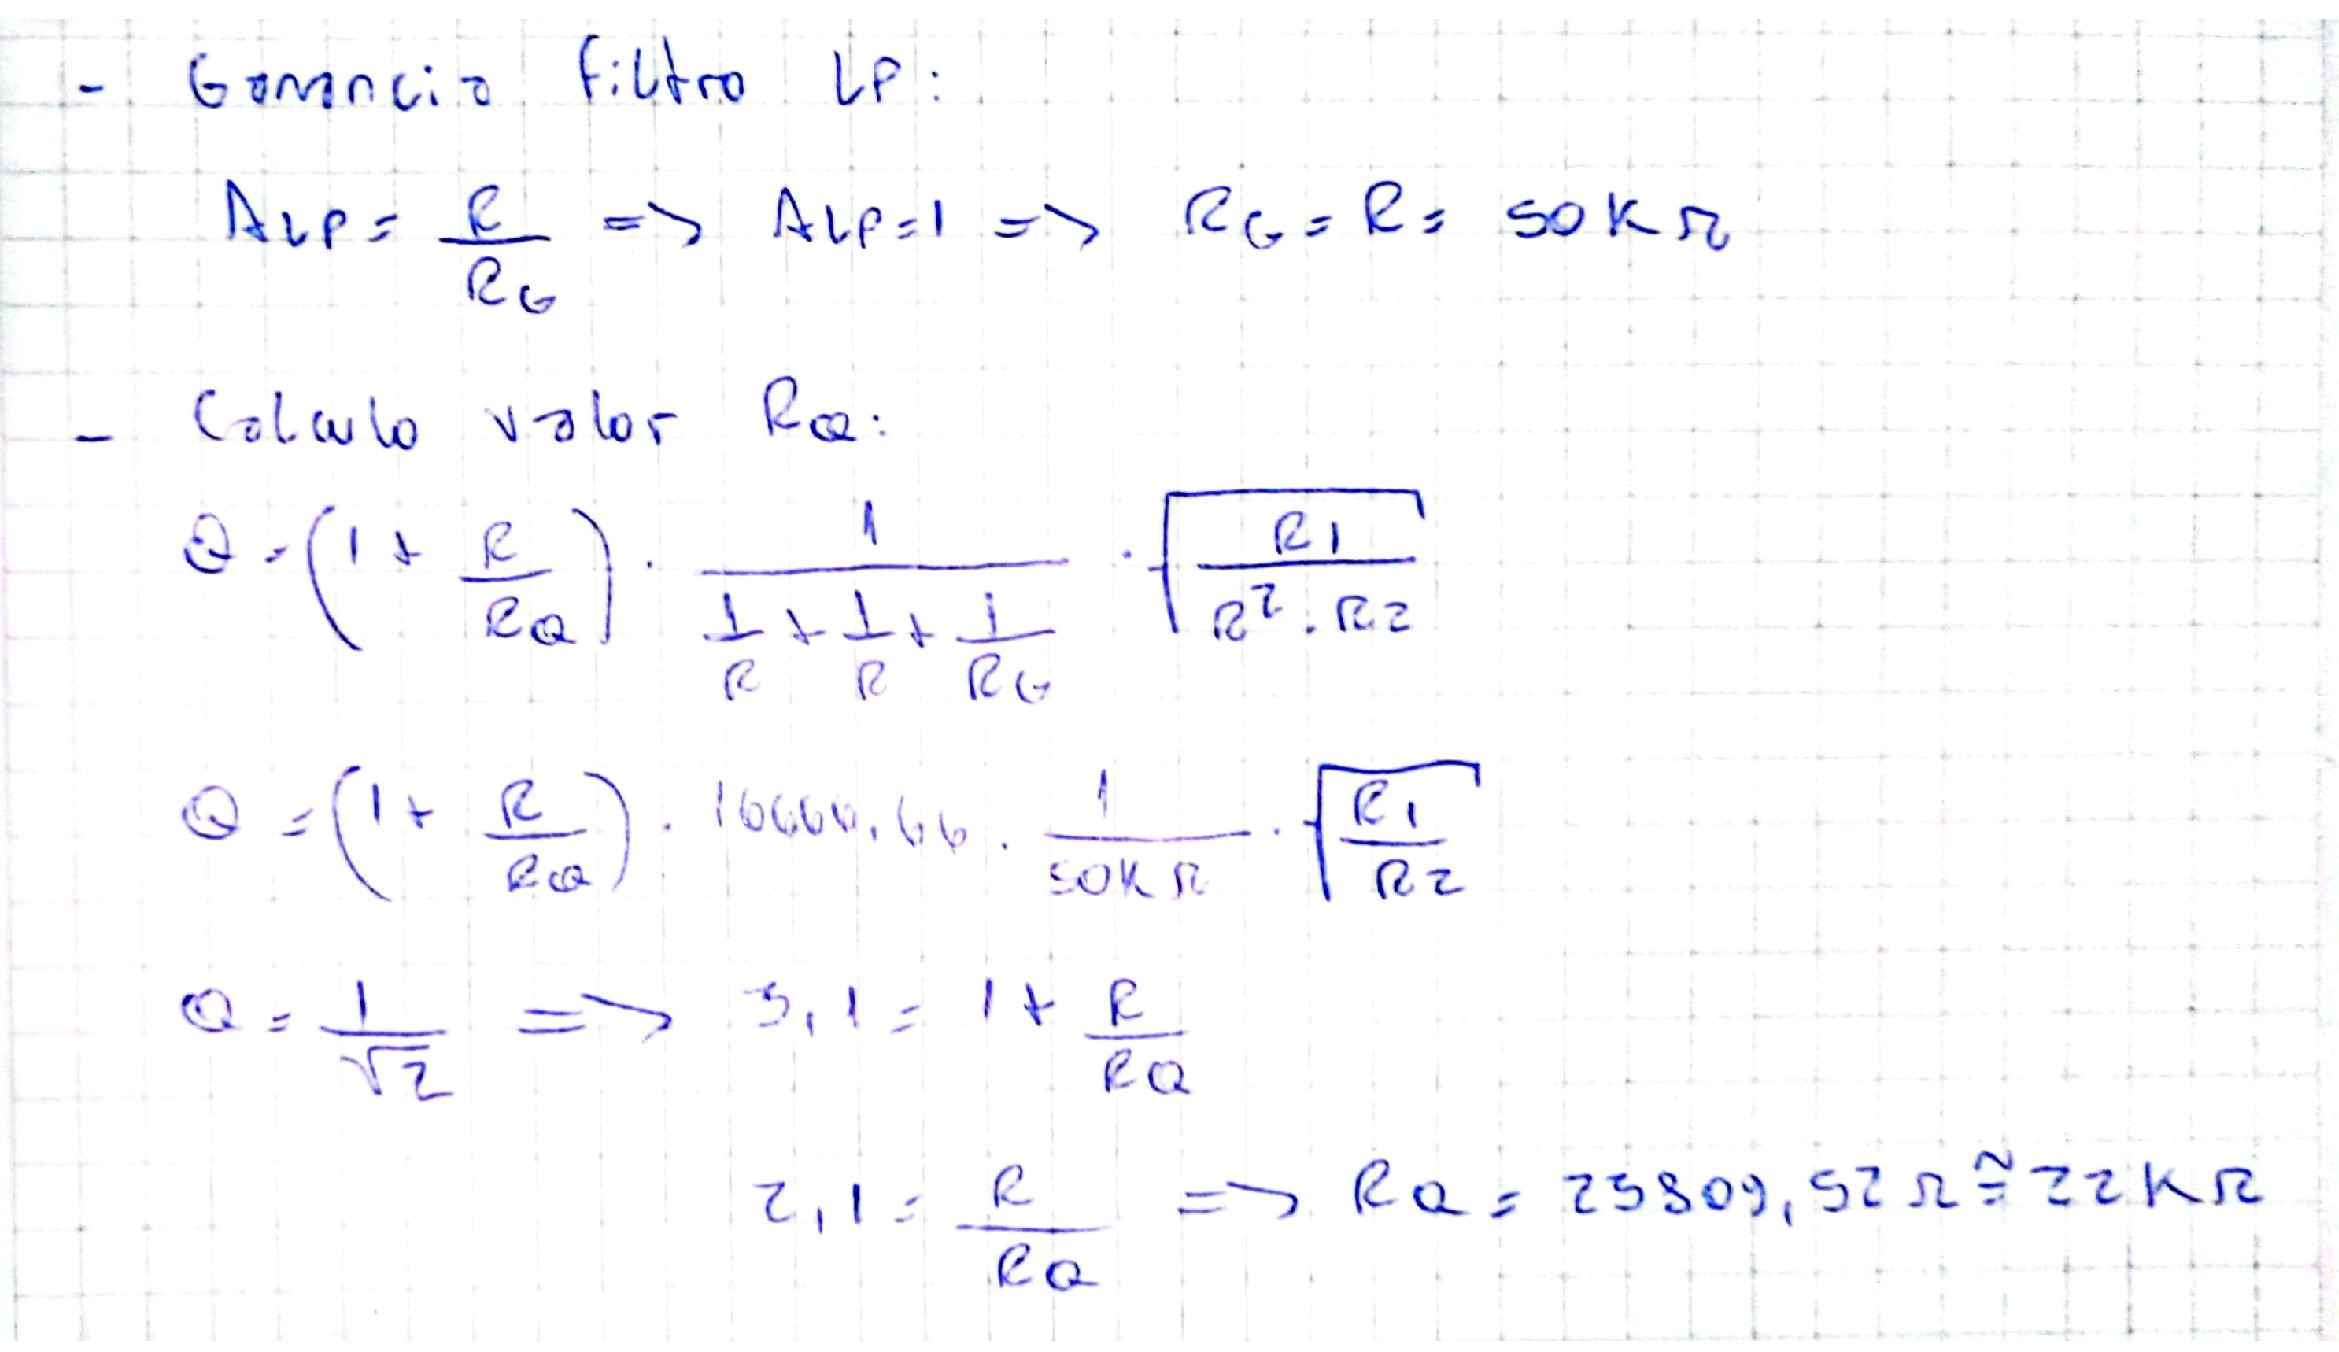 - Ganancia filtro LP:
ALP = R/RG => ALP=1 => RG = R = 50KΩ
- Calculo valor RQ:
Q = (1 + R/RQ) · 1/(1/R + 1/R + 1/RG) · √(R1/(R² · R2))
Q = (1 + R/RQ) · 16666,66 · 1/50KΩ · √(R1/R2)
Q = 1/√2 => 3,1 = 1 + R/RQ
2,1 = R/RQ => RQ = 23809,52Ω ≅ 22KΩ